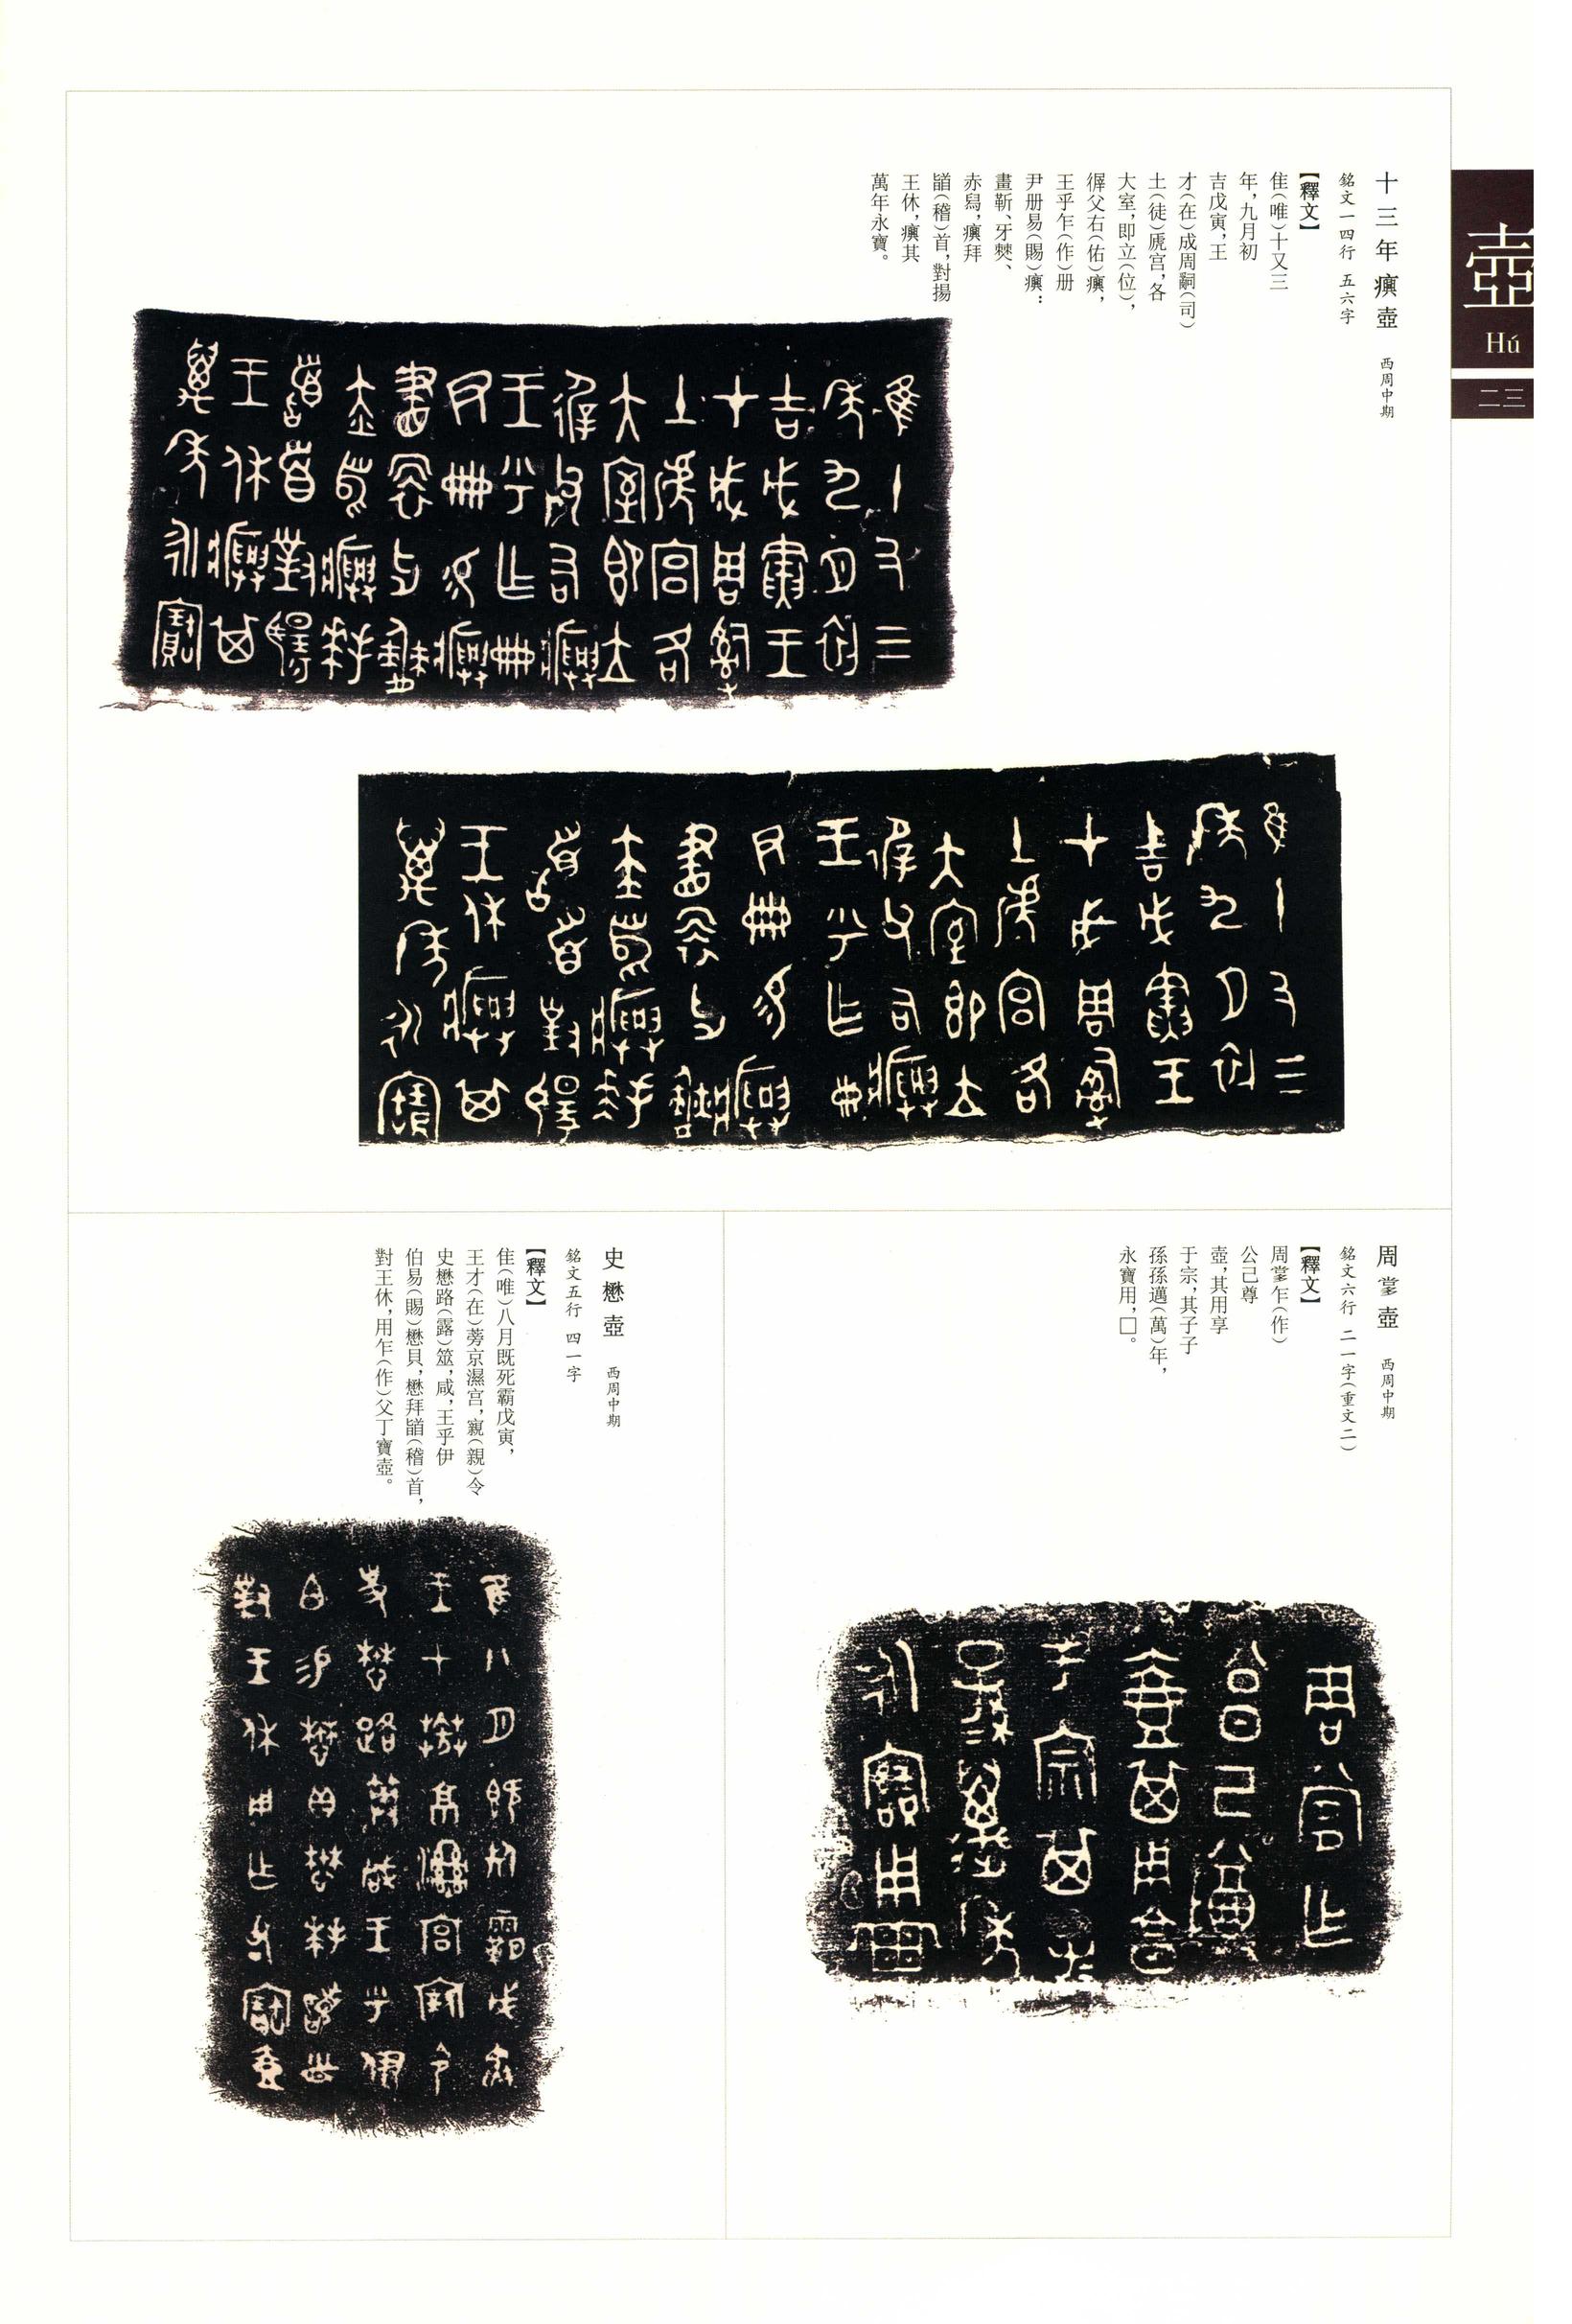 壺
Hú
二三
十三年𤼈壺 西周中期
銘文一四行 五六字
【釋文】
隹（唯）十又三
年，九月初
吉戊寅，王
才（在）成周嗣（司）
土（徒）淲宫，各
大室，即立（位），
徲父右（佑）𤼈，
王乎乍（作）册
尹册易（賜）𤼈：
畫靳、牙僰、
赤舄，𤼈拜
䭫（稽）首，對揚
王休，𤼈其
萬年永寶。
周㝨壺 西周中期
銘文六行 二一字（重文二）
【釋文】
周㝨乍（作）
公己尊
壺，其用享
于宗，其子子
孫孫邁（萬）年，
永寶用，□。
史懋壺 西周中期
銘文五行 四一字
【釋文】
隹（唯）八月既死霸戊寅，
王才（在）蒡京濕宫，寴（親）令
史懋路（露）筮，咸，王乎伊
伯易（賜）懋貝，懋拜䭫（稽）首，
對王休，用乍（作）父丁寶壺。